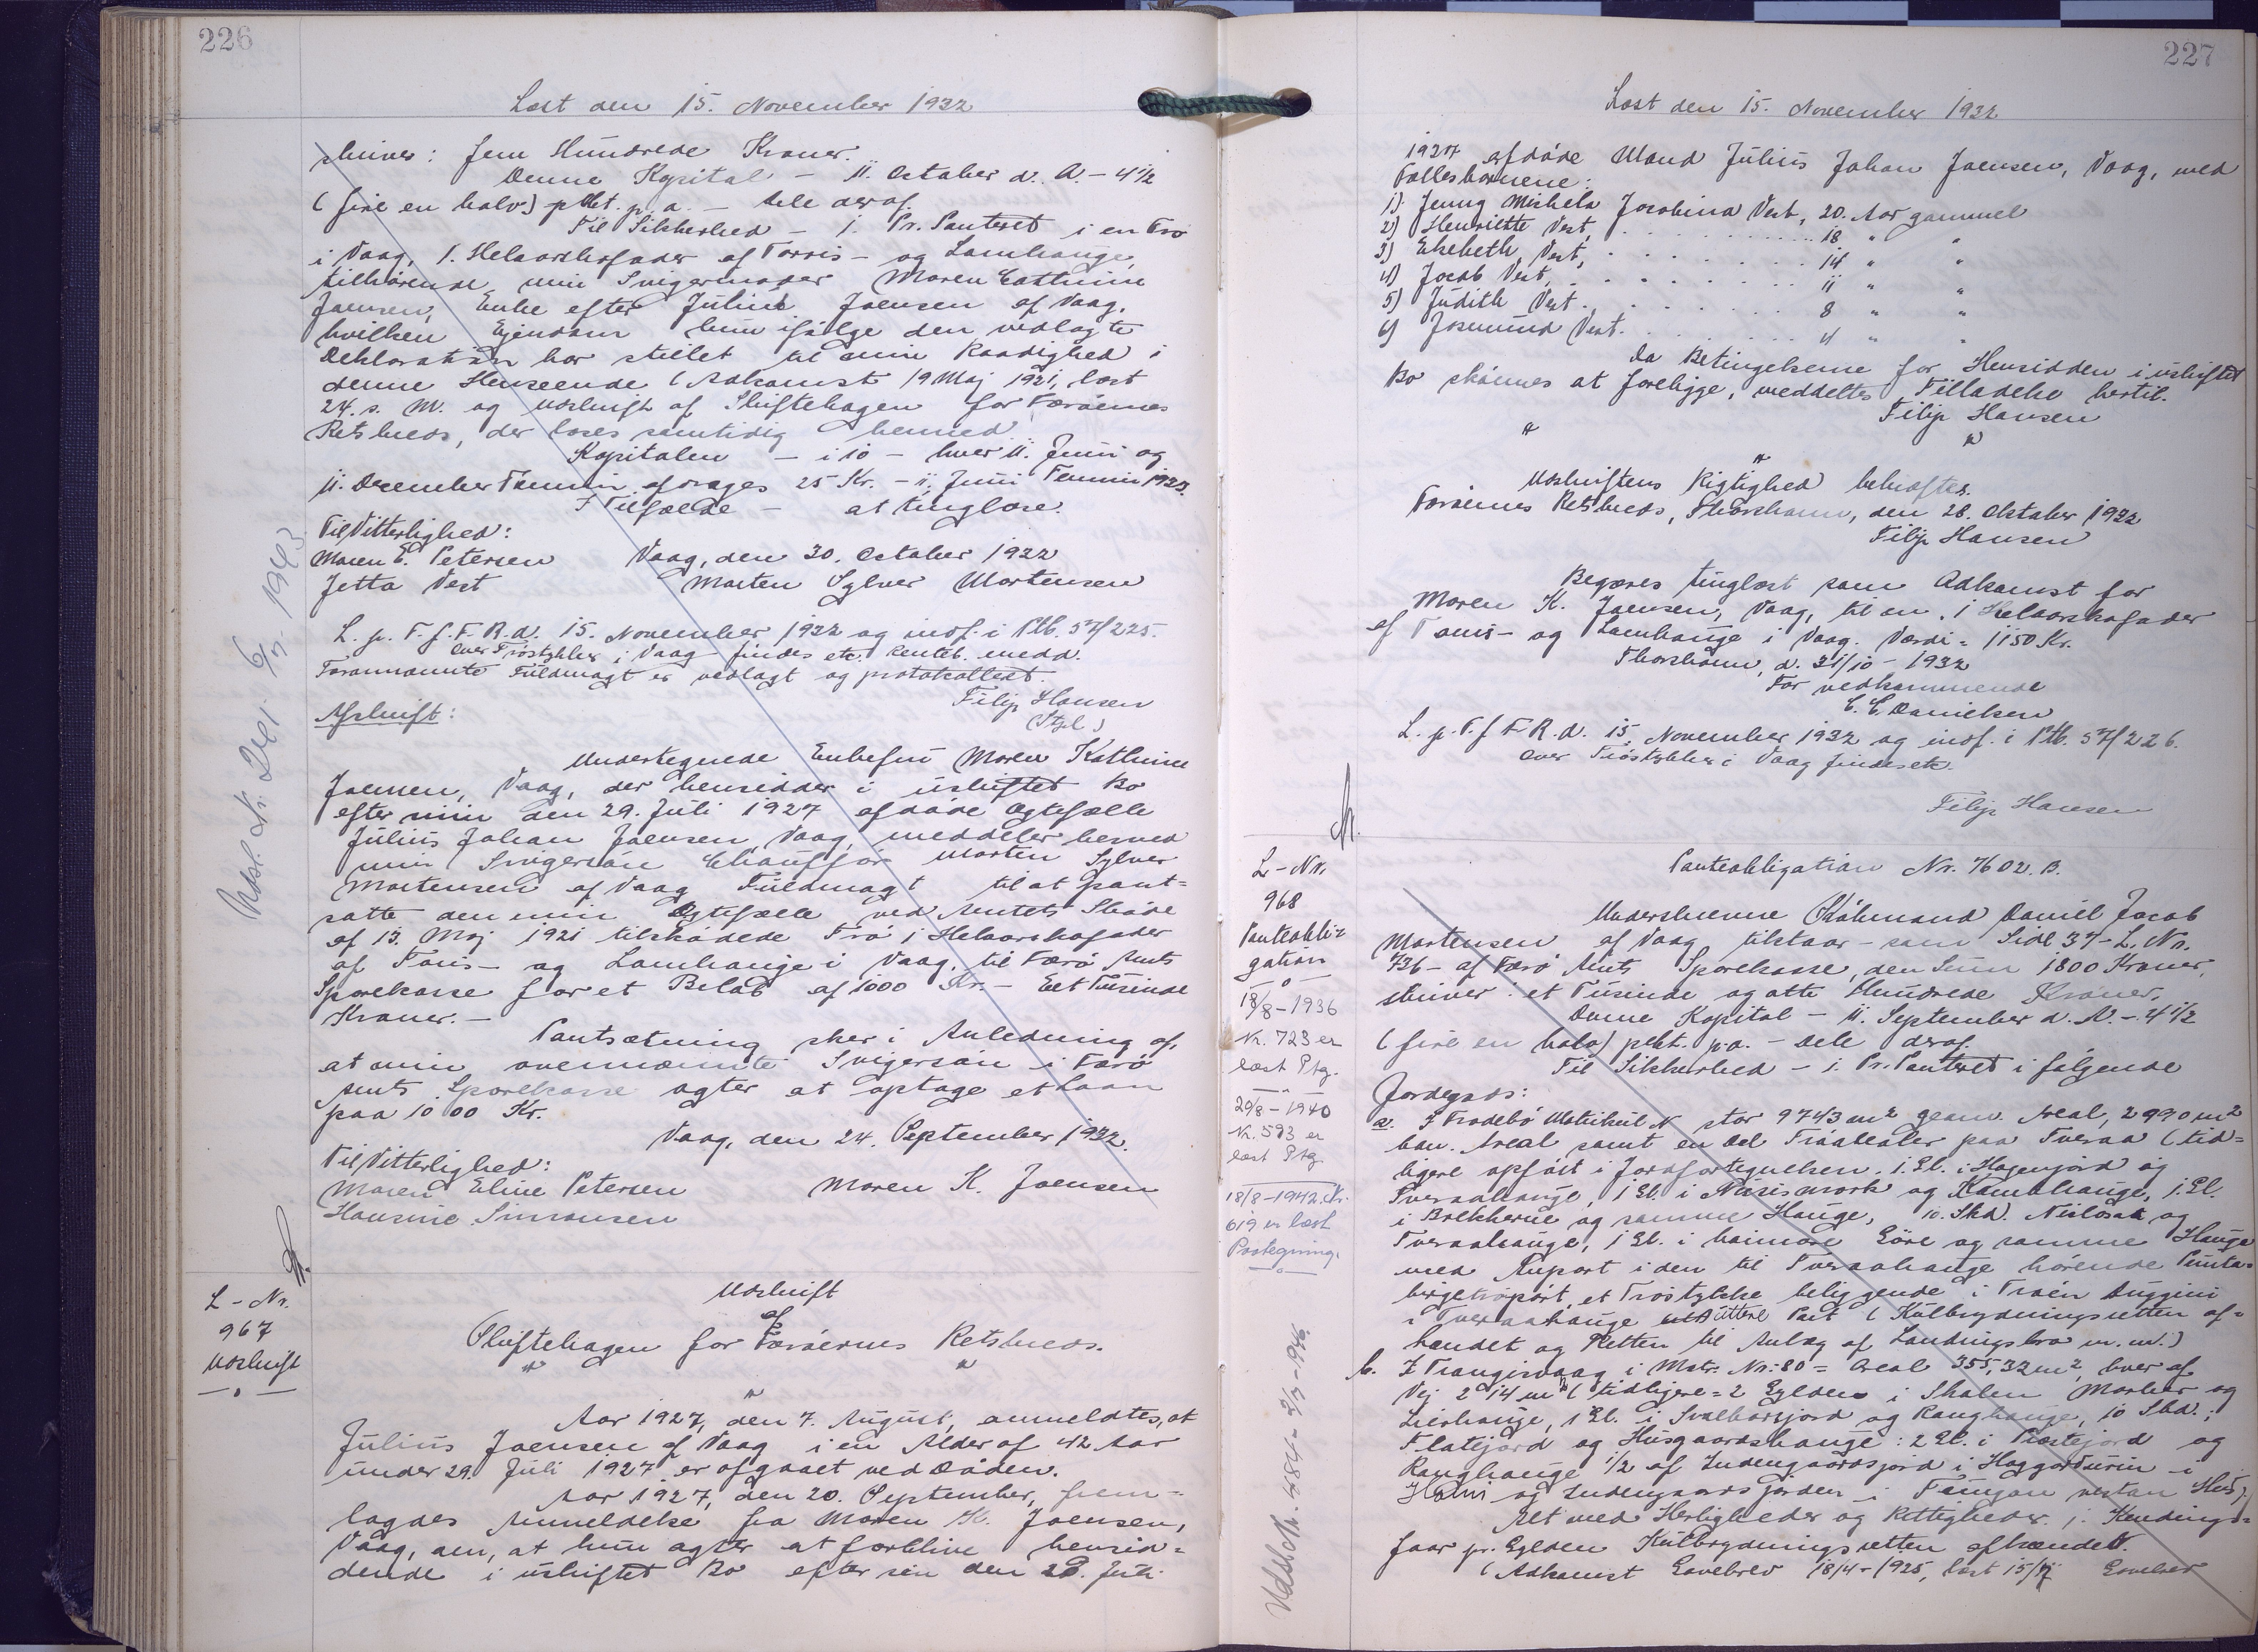 226
Læst den 15. November 1932
skriver: Fem Hundrede Kroner.
Denne Kapital - 11. October d. A. - 4 1/2
(fire en halv) pCt. p. a. - dele deraf
Til Sikkerhed - 1. Pr. Panteret i en Trø
i Vaag, 1. Helaarshofoder af Torris- og Lamhauge,
tilhørende min Svigermoder Maren Cathrine
Joensen, Enke efter Julius Joensen af Vaag,
hvilken Ejendom hun ifølge den vedlagte
Deklaration har stillet til min Raadighed i
denne Henseende (Adkomst 19 Maj 1921, læst
24. s. M. og Udskrift af Skiftebogen for Færøernes
Retskreds, der læses samtidig hermed
Kapitalen - i 10 - hver 11. Juni og
11. December Termin afdrages 25 Kr. - 11. Juni Termin 1933.
I Tilfælde - at tinglæse.
Til Vitterlighed:
Maren E. Petersen Vaag, den 30. October 1932
Jetta Vest Morten Sylver Mortensen
L. p. T. f. F. R. d. 15. November 1932 og indf. i Ptb. 57/225.
Over Trøstykker i Vaag findes etc. Renteb. medd.
Forannævnte Fuldmagt er vedlagt og protokolleret.
Filip Hansen
(Stpl)
Afskrift:
Undertegnede Enkefru Maren Kathrine
Joensen, Vaag, der hensidder i uskiftet Bo
efter min den 29. Juli 1927 afdøde Ægtefælle
Julius Johan Joensen, Vaag, meddeler herved
min Svigersøn Chauffør Morten Sylver
Mortensen af Vaag Fuldmagt til at pant=
sætte den min Ægtefælle ved Amtets Skøde
af 13. Maj 1921 tilskødede Trø 1 Helaarshofoder
af Toris- og Lamhauge i Vaag, til Færø Amts
Sparekasse for et Beløb af 1000 Kr. - Eet Tusinde
Kroner. -
Pantsætning sker i Anledning af,
at min ovennævnte Svigersøn i Færø
Amts Sparekasse agter at optage et Laan
paa 1000 Kr.
Vaag, den 24. September 1932.
Til Vitterlighed:
Maren Eline Petersen Maren K. Joensen
Hansine Simonsen
Udsl. Nr. 241. 6/7. 1943
L - Nr.
967
Udskrift
Udskrift
af
Skiftebogen for Færøernes Retskreds.
Aar 1927, den 7. August, anmeldtes, at
Julius Joensen af Vaag i en Alder af 42 Aar
under 29. Juli 1927 er afgaaet ved Døden.
Aar 1927, den 20. September, frem=
lagdes Anmeldelse fra Maren K. Joensen,
Vaag, om, at hun agter at forblive hensid=
dende i uskiftet Bo efter sin den 29. Juli
227
Læst den 15. November 1932
1927 afdøde Mand Julius Johan Joensen, Vaag, med
Fællesbørnene:
1) Jenny Mishela Jacobina Vest, 20. Aar gammel
2) Henriette Vest, 18 " "
3) Elsebeth Vest, 14 " "
4) Jacob Vest, 11 " "
5) Judith Vest. 8 " "
6) Josmund Vest. 4 " "
Da Betingelserne for Hensidden i uskiftet
Bo skønnes at foreligge, meddeltes Tilladelse hertil.
Filip Hansen
Udskriftens Rigtighed bekræftes.
Færøernes Retskreds, Thorshavn, den 28. Oktober 1932
Filip Hansen
Begæres tinglæst som Adkomst for
Maren K. Joensen, Vaag, til en 1 Helaarshofoder
af Toris- og Lamhauge i Vaag. Værdi = 1150 Kr.
Thorshavn, d. 31/10 - 1932
For vedkommende
C. C. Danielsen
L. p. T. f. F. R. d. 15. November 1932 og indf. i Ptb. 57/226.
Over Trøstykker i Vaag findes etc.
Filip Hansen
L - Nr.
968
Panteobli=
gation
18/8 - 1936
Nr. 723 er
læst Ptg.
20/8 - 1940
Nr. 593 er
læst Ptg.
18/8 - 1942. Nr.
619 er læst
Paategning.
Panteobligation Nr. 7602. B.
Underskrevne Købmand Daniel Jacob
Mortensen af Vaag tilstaar - som Side 37 - L. Nr.
736 - af Færø Amts Sparekasse, den Sum 1800 Kroner,
skriver: et Tusinde og otte Hundrede Kroner.
Denne Kapital - 11. September d. A. - 4 1/2
(fire en halv) pCt. p. a. - dele deraf.
Til Sikkerhed - 1. Pr. Panteret i følgende
Jordegods:
a. I Trodebø Matrikul N stor 9743 m² geom. Areal, 2990 m²
bon. Areal samt en Del Trøadealer paa Tveraa (tid=
ligere opført i Jordfortegnelsen. 1. Gl. i Hagenjord og
Tveraahauge, 1 Gl. i Nusismørk og Kambhauge, 1. Gl.
i Brekkerne og samme Hauge, 10. Skd. og
Tveraahauge, 1 Gl. i heimare Gøre og samme Hauge
med Anpart i den til Tveraahauge hørende
et Trøstykke beliggende i Trøen
i Tveraahauge uttere Part (Kulbrydningsretten af=
hændet og Retten til Anlæg af Landingsbro m. m.)
b. I Trangisvaag i Matr. Nr. 80 = Areal 355,32 m², hver af
Vej 2 14 m² (tidligere = 2 Gylden i Skalen Marker og
Lidshauge, 1 Gl. i Svalbarsjord og Ranghauge, 10 Skd.;
Flatejord og Husgaardshauge: 2 Gl. i Præstejord og
Ranghauge 1/2 af Indengaardsjord i Haggardurin - i
Holmi og Indengaardsjorden i vestan Hus);
Alt med Herligheder og Rettigheder. 1. Kendings=
faar pr. Gylden Kulbrydningsretten afhændet.
(Adkomst Gavebrev 18/4 - 1925, læst 15/7 Gavebrev
Udsl. Nr. 484 - 2/7 - 946.